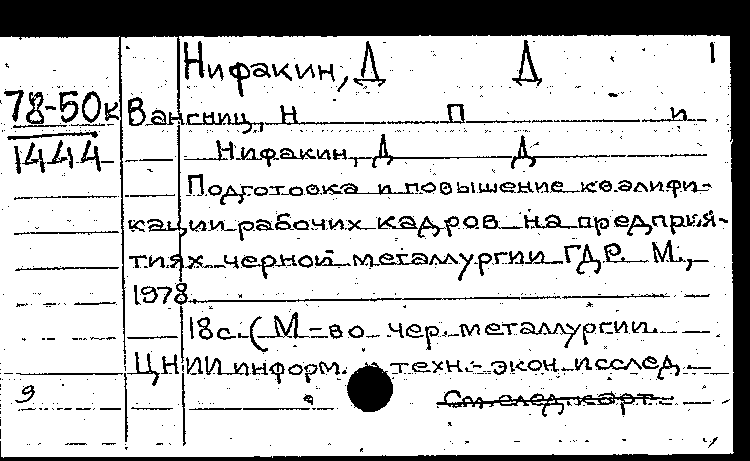 Нифакин, Д Д 1
78-50к Вангниц, Н П и
1444 Нифакин, Д Д
Подготовка и повышение квалифи-
кации рабочих кадров на предприя-
тиях черной металлургии ГДР. М.,
1978.
18с. (М-во чер. металлургии.
ЦНИИ информ. и техн.-экон. исслед.
9 См. след. карт.